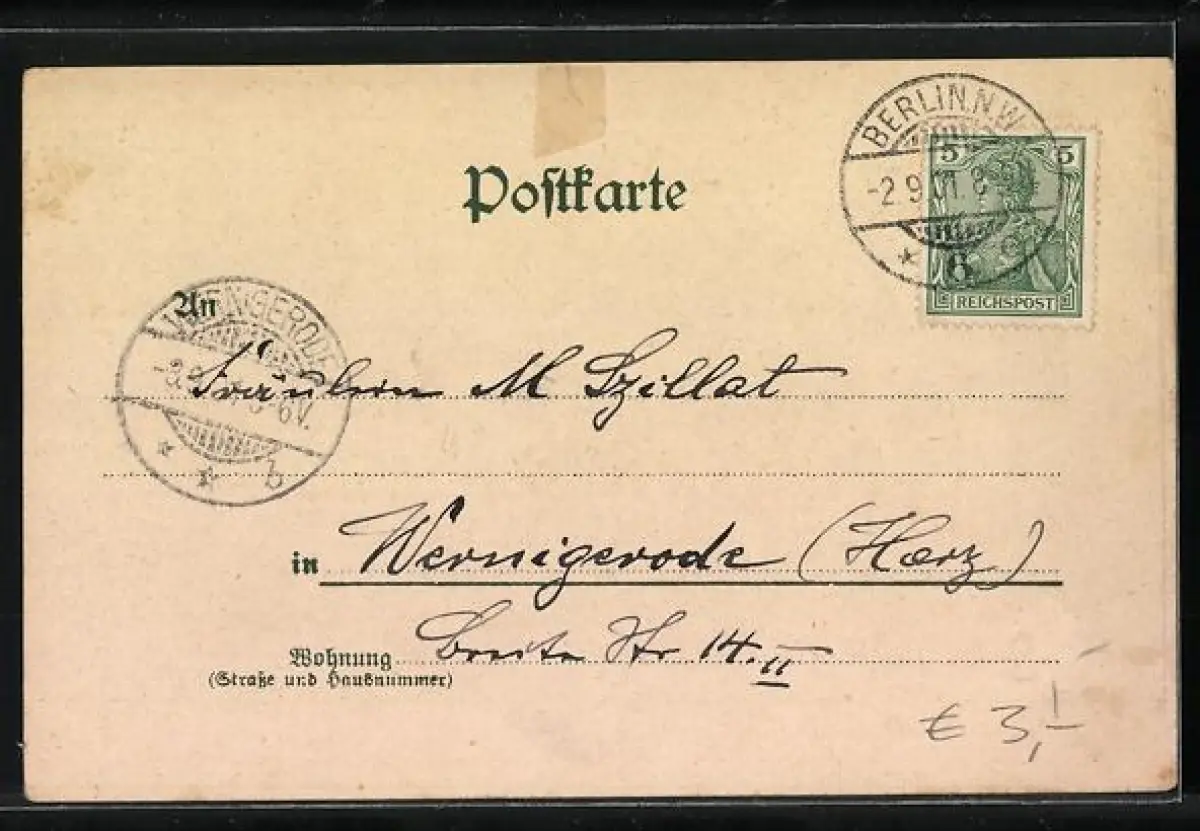 Postkarte
BERLIN. N.W.
-2.9. 11. 8
* 6
5 5
REICHSPOST
An
WERNIGERODE
-3.9. 5-6V.
* * b
Fräulein M Szillat
in Wernigerode (Harz)
Wohnung Breite Str 14. II
(Straße und Hausnummer)
€ 3,-